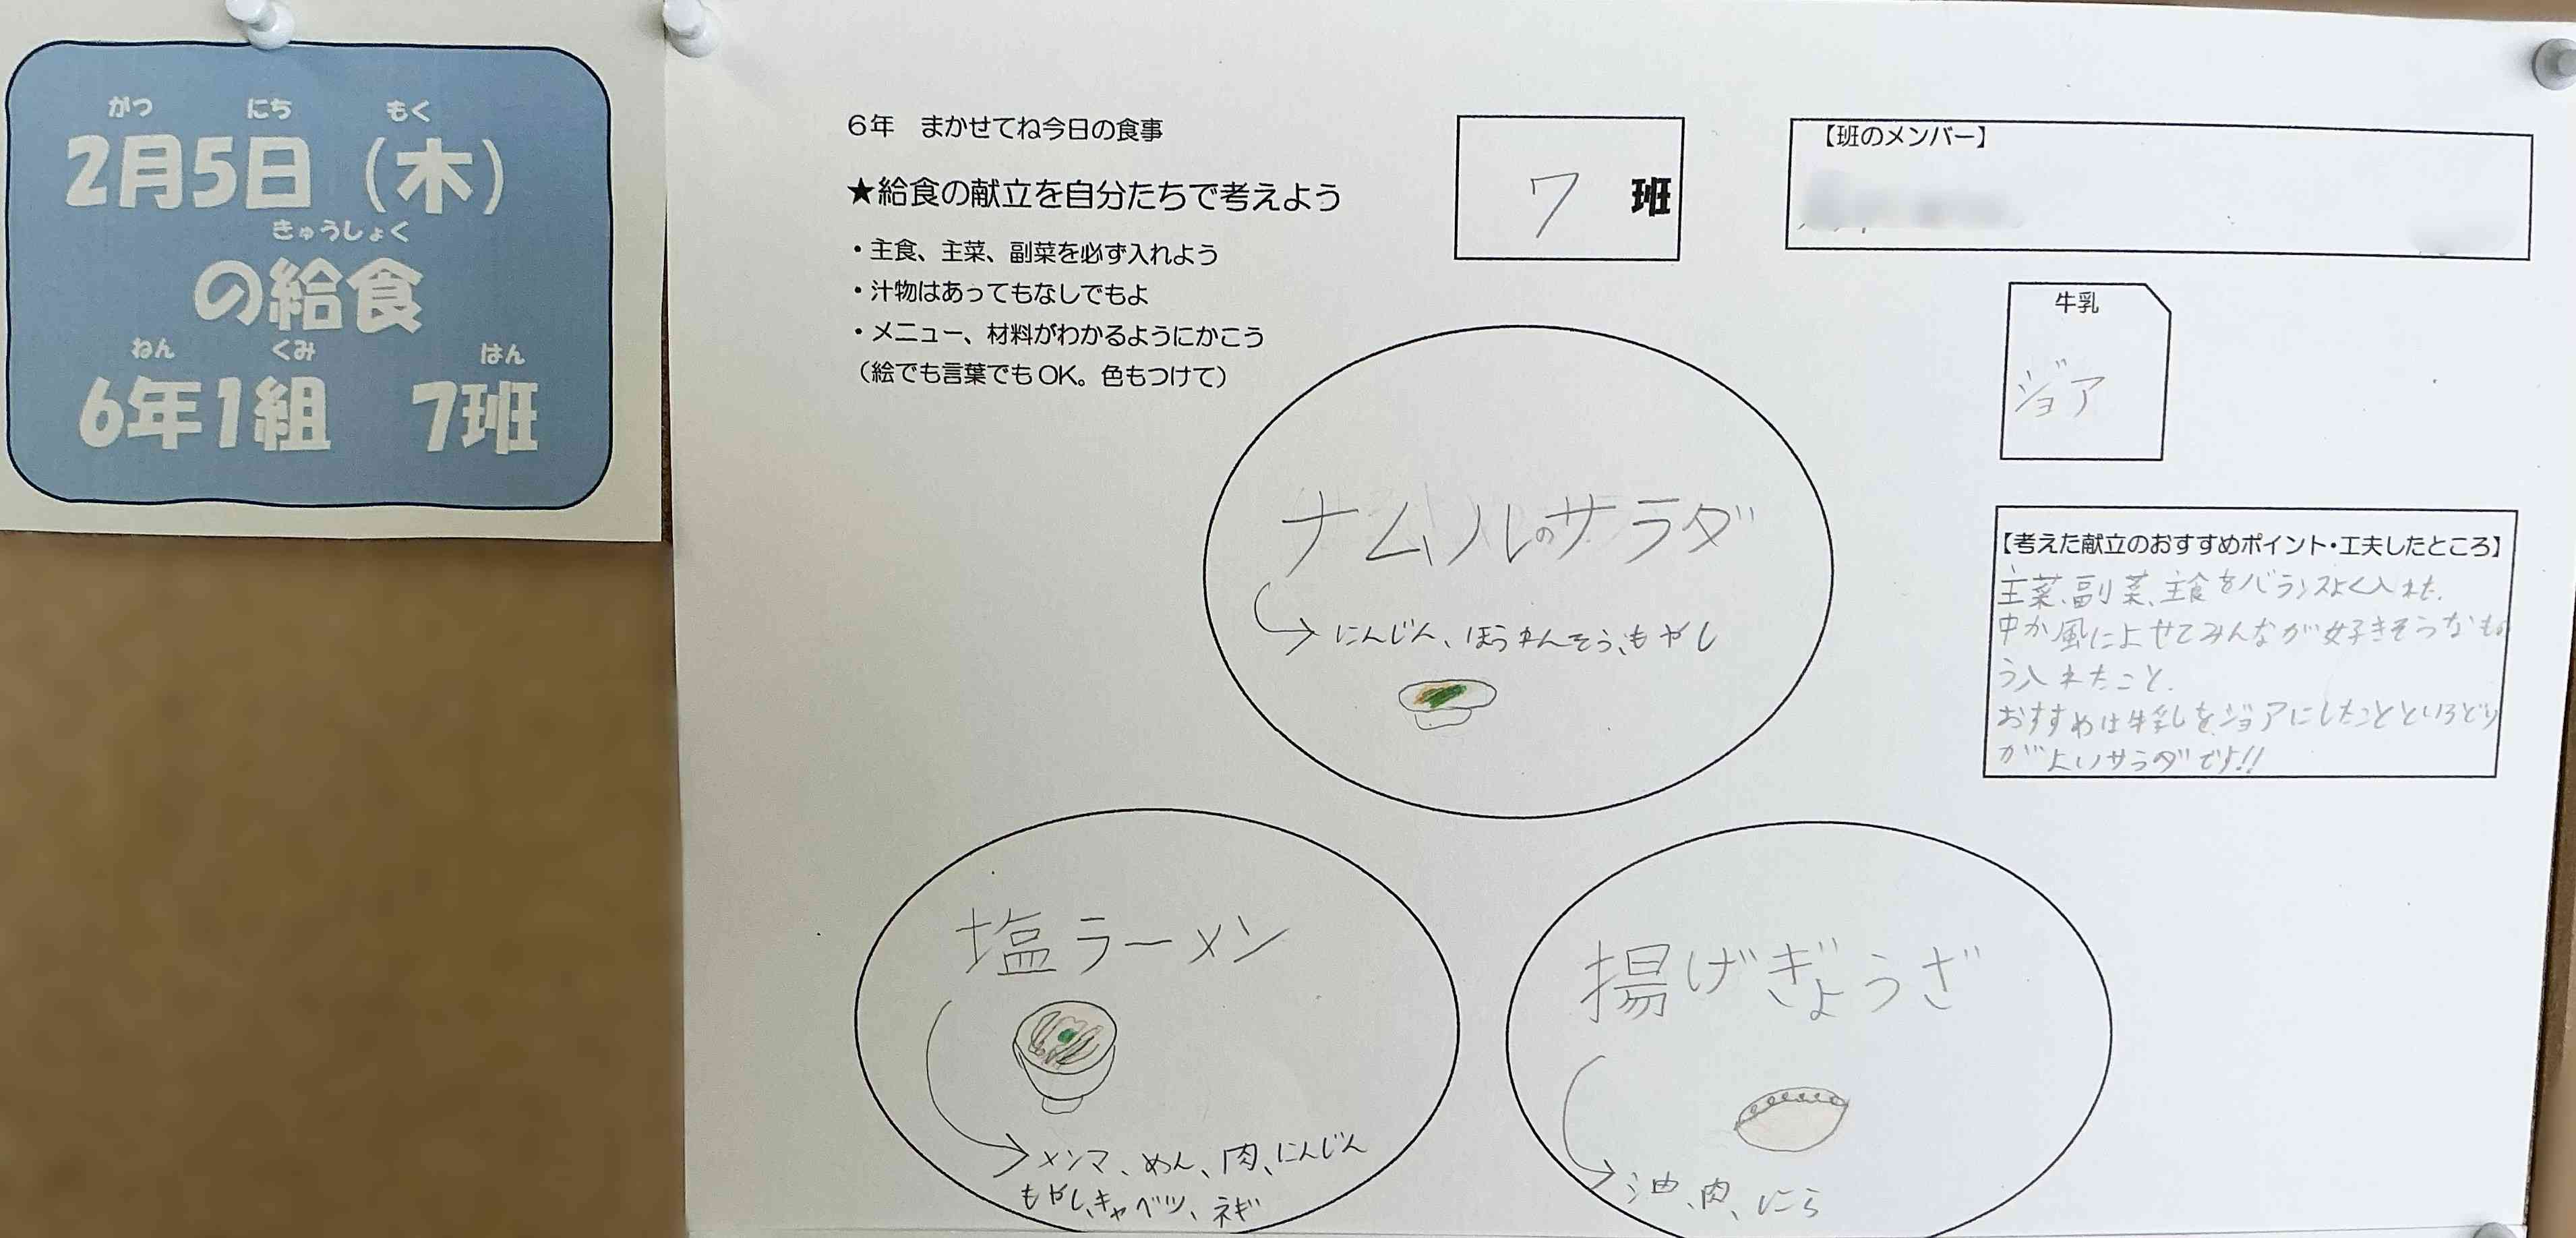 がつ にち もく
2月5日（木）
きゅうしょく
の給食
ねん くみ はん
6年1組 7班
6年 まかせてね今日の食事
★給食の献立を自分たちで考えよう
・主食、主菜、副菜を必ず入れよう
・汁物はあってもなしでもよ
・メニュー、材料がわかるようにかこう
（絵でも言葉でもOK。色もつけて）
7 班
【班のメンバー】
牛乳
ジョア
ナムルのサラダ
にんじん、ほうれんそう、もやし
【考えた献立のおすすめポイント・工夫したところ】
主菜、副菜、主食をバランスよく入れた。
中か風によせてみんなが好きそうなもの
う入れたこと。
おすすめは牛乳をジョアにしたことといろどり
がよいサラダです!!
塩ラーメン
メンマ、めん、肉、にんじん
もやし、キャベツ、ネギ
揚げぎょうざ
油、肉、にら